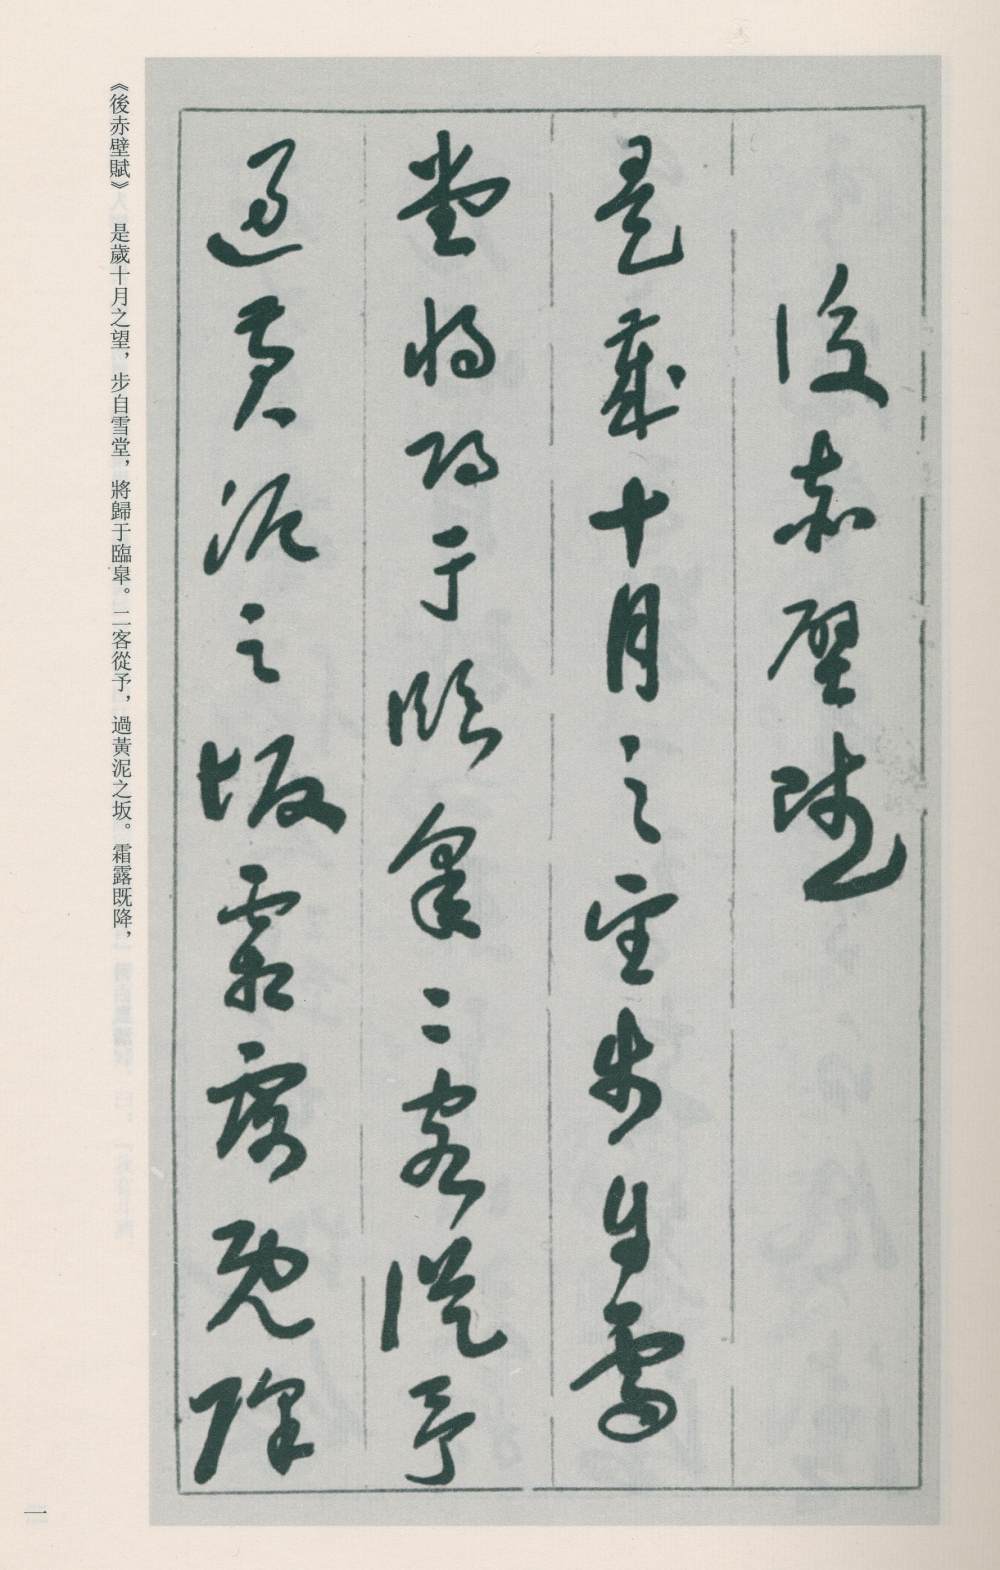 後赤壁賦
是歲十月之望步自雪
堂將歸于臨皋二客從予
過黃泥之坂霜露既降
《後赤壁賦》 是歲十月之望，步自雪堂，將歸于臨皋。二客從予，過黃泥之坂。霜露既降，
一